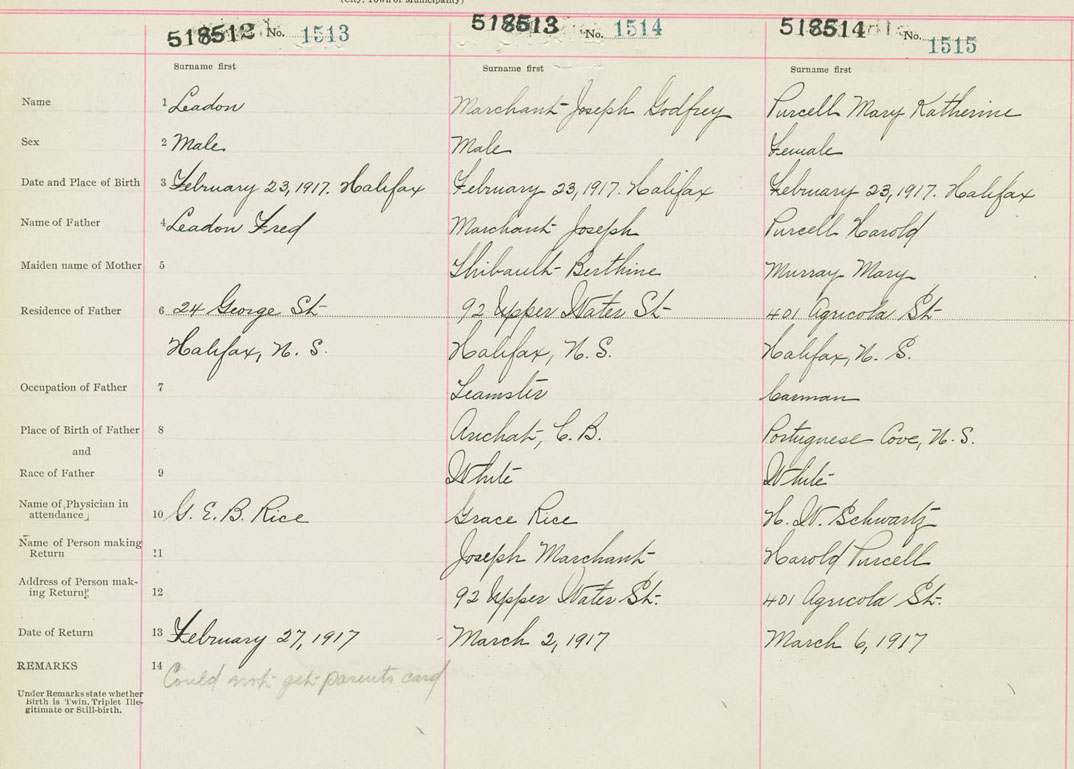 (City, Town or Municipality)
518512 No. 1513 518513 No. 1514 518514 No. 1515
Surname first Surname first Surname first
Name 1 Leadon Marchant Joseph Godfrey Purcell Mary Katherine
Sex 2 Male Male Female
Date and Place of Birth 3 February 23, 1917. Halifax February 23, 1917. Halifax February 23, 1917. Halifax
Name of Father 4 Leadon Fred Marchant Joseph Purcell Harold
Maiden name of Mother 5 Thibault Berthine Murray Mary
Residence of Father 6 24 George St 92 Upper Water St 401 Agricola St
Halifax, N. S. Halifax, N. S. Halifax, N. S.
Occupation of Father 7 Teamster Carman
Place of Birth of Father 8 Arichat, C. B. Portuguese Cove, N. S.
and
Race of Father 9 White White
Name of Physician in
attendance 10 G. E. B. Rice Grace Rice H. W. Schwartz
Name of Person making
Return 11 Joseph Marchant Harold Purcell
Address of Person mak-
ing Return 12 92 Upper Water St. 401 Agricola St.
Date of Return 13 February 27, 1917 March 2, 1917 March 6, 1917
REMARKS 14 Could not get parents card
Under Remarks state whether
Birth is Twin, Triplet Ille-
gitimate or Still-birth.